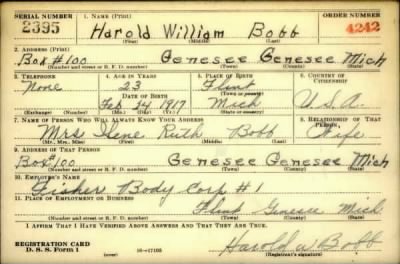 SERIAL NUMBER 1. NAME (Print) ORDER NUMBER
2395 Harold William Bobb 4242
(First) (Middle) (Last)
2. ADDRESS (Print)
Box #100 Genesee Genesee Mich
(Number and street or R. F. D. number) (Town) (County) (State)
3. TELEPHONE 4. AGE IN YEARS 5. PLACE OF BIRTH 6. COUNTRY OF CITIZENSHIP
None 23 Flint
DATE OF BIRTH (Town or county)
Feb 24 1917 Mich U.S.A.
(Exchange) (Number) (Mo.) (Day) (Yr.) (State or country)
7. NAME OF PERSON WHO WILL ALWAYS KNOW YOUR ADDRESS 8. RELATIONSHIP OF THAT PERSON
Mrs Ilene Ruth Bobb Wife
(Mr., Mrs., Miss) (First) (Middle) (Last)
9. ADDRESS OF THAT PERSON
Box #100 Genesee Genesee Mich
(Number and street or R. F. D. number) (Town) (County) (State)
10. EMPLOYER'S NAME
Fisher Body Corp #1
11. PLACE OF EMPLOYMENT OR BUSINESS
Flint Genesee Mich
(Number and street or R. F. D. number) (Town) (County) (State)
I AFFIRM THAT I HAVE VERIFIED ABOVE ANSWERS AND THAT THEY ARE TRUE.
REGISTRATION CARD Harold W Bobb
D. S. S. Form 1 (over) 16—17105 (Registrant's signature)